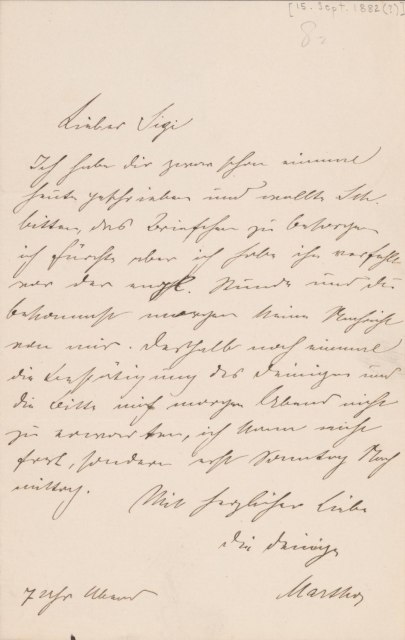 [15. Sept. 1882(?)]
8.
Lieber Sigi
Ich habe dir zwar schon einmal
heute geschrieben und wollte Sch.
bitten, das Briefchen zu besorgen
ich fürchte aber ich habe ihn verfehlt
vor der engl. Stunde und du
bekommst morgen keine Nachricht
von mir. Deshalb noch einmal
die Bestätigung des Deinigen und
die Bitte mich morgen Abend nicht
zu erwarten, ich kann nicht
fort, sondern erst Sonntag Nach
mittag.
Mit herzlicher Liebe
die deinige
7 Uhr Abend
Martha